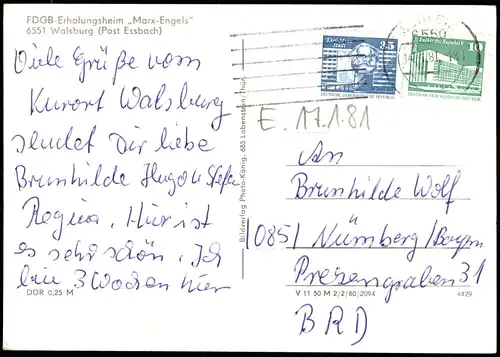 FDGB-Erholungsheim „Marx-Engels"
6551 Walsburg (Post Essbach)
Viele Grüße vom
Kurort Walsburg
sendet Dir liebe
Brunhilde Hugo u Stefan
Regina. Hier ist
es sehr schön. Ich
bin 3 Wochen hier
DDR 0,25 M
Bildverlag Photo-König, 685 Lobenstein/Thür.
35
DEUTSCHE DEMOKRATISCHE REPUBLIK
10
Palast der Republik
DEUTSCHE DEMOKRATISCHE REPUBLIK
E. 17.1.81
An
Brunhilde Wolf
0851 Nürnberg/Bayern
31
BRD
V 11 50 M 2/2/80/2094
4429